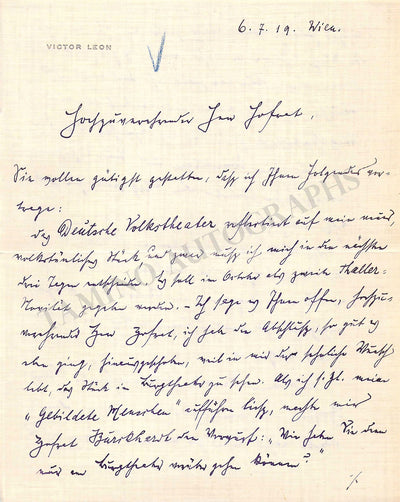 6. 7. 19. Wien.
VICTOR LEON
Hochzuverehrender Herr Hofrat,
Sie wollen gütigst gestatten, dass ich Ihnen Folgendes vor-
trage:
das Deutsche Volkstheater reflectiert auf mein neues,
volkstümliches Stück und zwar muss ich mich in den nächsten
drei Tagen entscheiden. Es soll im October als zweite Thaller-
Novität gegeben werden. – Ich sage es Ihnen offen, hochzu-
verehrender Herr Hofrat, ich habe den Abschluss, so gut es
eben ging, hinausgeschoben, weil in mir der sehnliche Wunsch
lebt, das Stück im Burgtheater zu sehen. Als ich s. Zt. meine
„Gebildete Menschen" aufführen liess, machte mir
Hofrat Burckhardt den Vorwurf: „Wie haben Sie denn
nur am Burgtheater vorüber gehen können?"
·/·
TAMINO AUTOGRAPHS